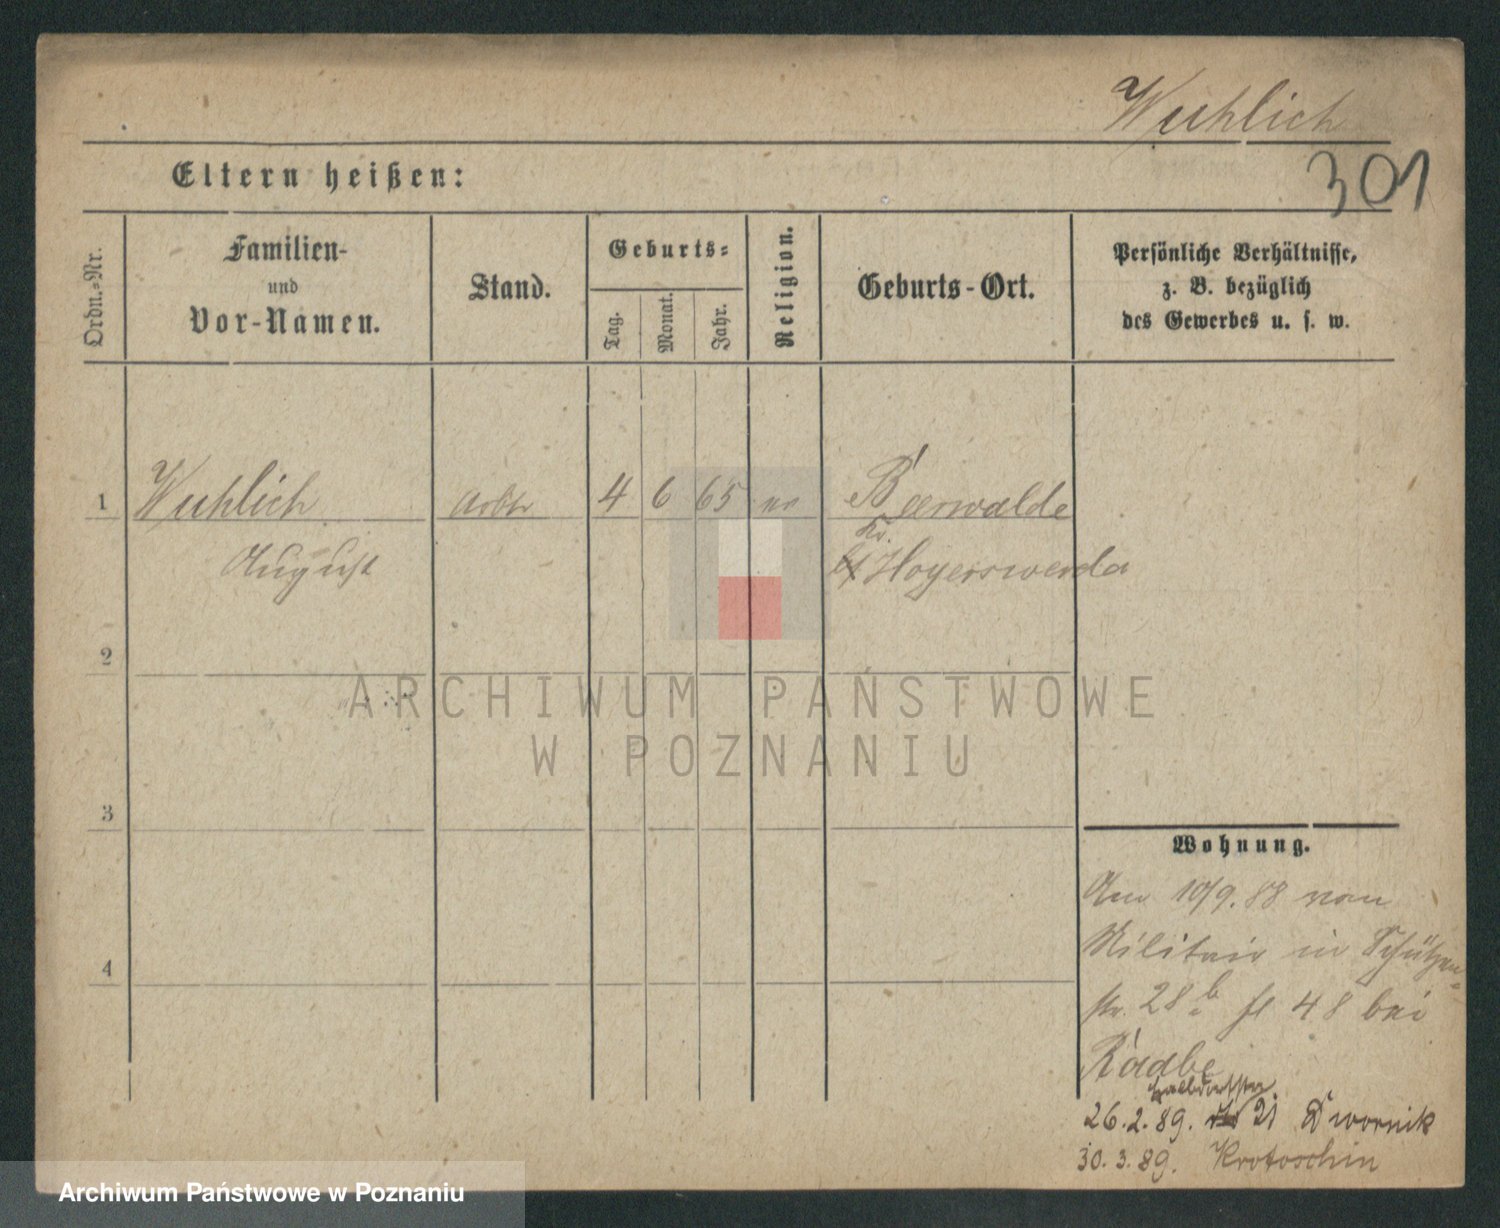 Wuhlich
301
Eltern heißen:
Ordn.=Nr.
Familien-
und
Vor-Namen.
Stand.
Geburts=
Tag.
Monat.
Jahr.
Religion.
Geburts-Ort.
Persönliche Verhältnisse,
z. B. bezüglich
des Gewerbes u. s. w.
1 Wuhlich Arbtr 4 6 65 ev Baerwalde
August Kr. Hoyerswerda
2
ARCHIWUM PAŃSTWOWE
W POZNANIU
3
4
Wohnung.
Am 10/9.88 vom
Militair in Schützen=
str. 28b fl 48 bei
Radbe
Halbdorfstr
26.2.89. 21 Dwornik
30.3.89. Krotoschin
Archiwum Państwowe w Poznaniu